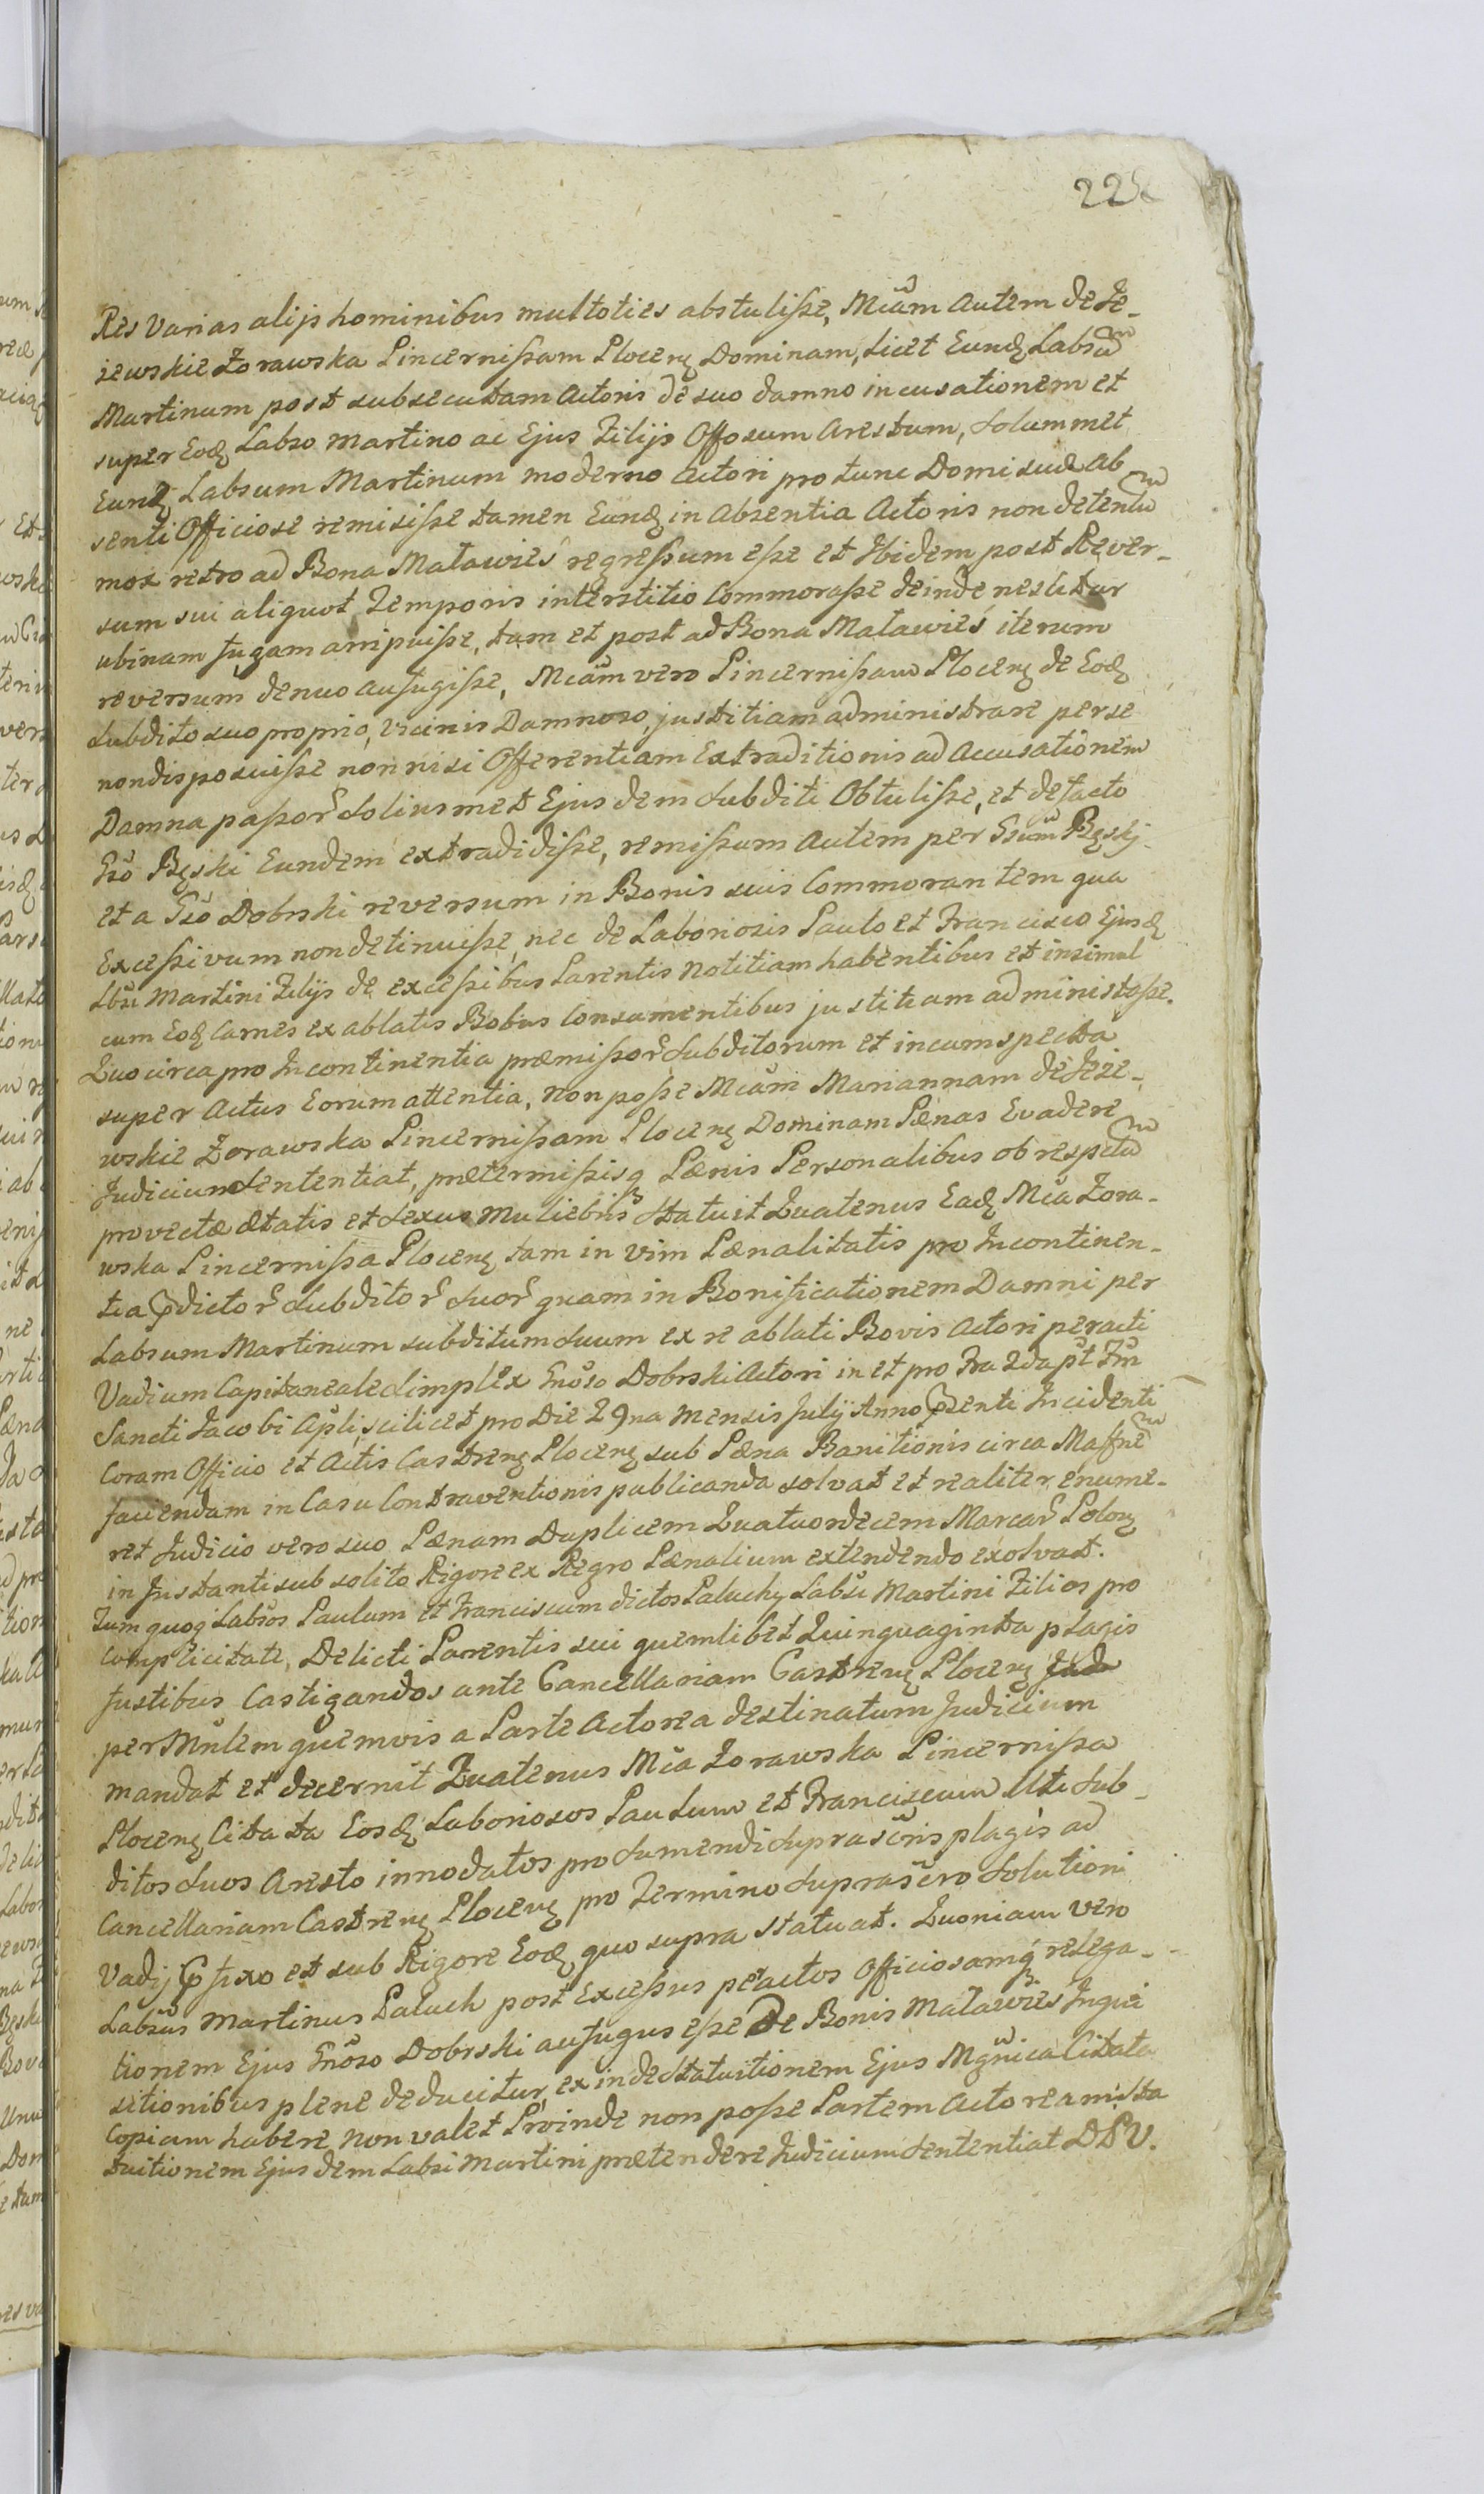 Res Varias alijs hominibus multoties abstulisse, Mcam Autem de Je-
zewskie Zorawska Pincernissam Plocen Dominam, licet Eundem Labsum
Martinum post subsecutam Actoris de suo damno incusationem et
super Eod Labso Martino ac Ejus Filijs Offosum Arestum, solummet
Eund Labsum Martinum moderno Actori pro tunc Domi suæ Ab
senti Officiose remisisse tamen Eund in Absentia Actoris non detentum
mox retro ad Bona Maławieś regressum esse et Ibidem post Rever-
sum sui aliquot Temporis interstitio Commorasse deinde nescitur
ubinam fugam arripuisse, tam et post ad Bona Maławieś iterum
reversum denuo aufugisse, Mcam vero Pincernissam Plocen de Eod
subdito suo proprio, Vicinis Damnoso, justitiam administrare per se
non disposuisse non nisi Offerentiam Extraditionis ad Accusationem
Damna passor soliusmet Ejusdem subditi Obtulisse, et defacto
Gso Bęski Eundem extradidisse, remissum Autem per Gsum Bęski
et a Gso Dobrski reversum in Bonis suis Commorantem qua
Excessivum non detinuisse, nec de Laboriosis Paulo et Francisco Ejusd
Lbsi Martini Filijs de excessibus Parentis notitiam habentibus et insimul
cum Eod Carnes ex ablatis Bobus Consumentibus justitiam administrasse.
Quocirca pro Incontinentia præmissor subditorum et incumspecta
super Actus Eorum attentia, non posse Mcam Mariannam de Jeze-
wskie Zorawska Pincernissam Plocen Dominam Pænas Evadere
Judicium sententiat, prætermissisq Pænis Personalibus ob respectum
provectæ ætatis et sexus Muliebris statuit Quatenus Ead Mca Zora-
wska Pincernissa Plocen tam in vim Pænalitatis pro Incontinen-
tia pdictor subditor suor quam in Bonificationem Damni per
Labsum Martinum subditum suum ex re ablati Bovis Actori peracti
Vadium Capitaneale simplex Gnoso Dobrski Actori in et pro Fra 2da pt Fm
Sancti Jacobi Apli, scilicet pro Die 29na Mensis Julij Anno psenti Incidenti
Coram Officio et Actis Castren Plocen sub Pæna Banitionis circa Maffnem
faciendam in Casu Contraventionis publicanda solvat et realiter enume-
ret Judicio vero suo Pænam Duplicem Quatuordecem Marcar Polon
in Instanti sub solito Rigore ex Regro Pænalium extendendo exolvat.
Tum quoq Labsos Paulum et Franciscum dictos Paluchy Labsi Martini Filios pro
Complicitate, Delicti Parentis sui quemlibet Quinquaginta plagis
fustibus Castigandos ante Cancellariam Castren Plocen
per Mnlem quemvis a Parte Actorea destinatum Judicium
mandat et decernit Quatenus Mca Zorawska Pincernissa
Plocen Citata Eosd Laboriosos Paulum et Franciscum Uti Sub-
ditos suos Aresto innodatos pro sumendi suprascris plagis ad
Cancellariam Castren Plocen pro Termino suprascro solutioni
Vadij pfixo et sub Rigore Eod quo supra statuat. Quoniam vero
Labsus Martinus Paluch post Excessus peractos Officiosamq relega-
tionem Ejus Gnoso Dobrski aufugus esse De Bonis Maławieś Inqui
sitionibus plene deducitur, ex inde statuitionem Ejus Mgnica Citata
Copiam habere non valet Proinde non posse Partem Actoream Sta
tuitionem Ejusdem Labsi Martini prætendere Judicium sententiat DLV.